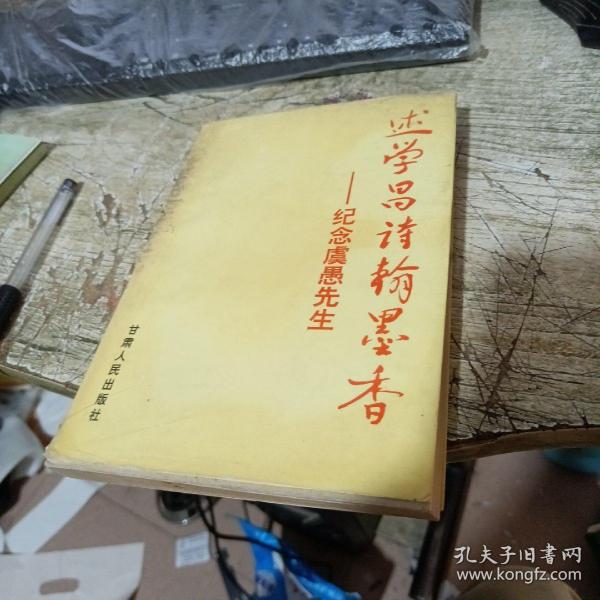 述学昌诗翰墨香
——纪念虞愚先生
甘肃人民出版社
孔夫子旧书网
www.kongfz.com